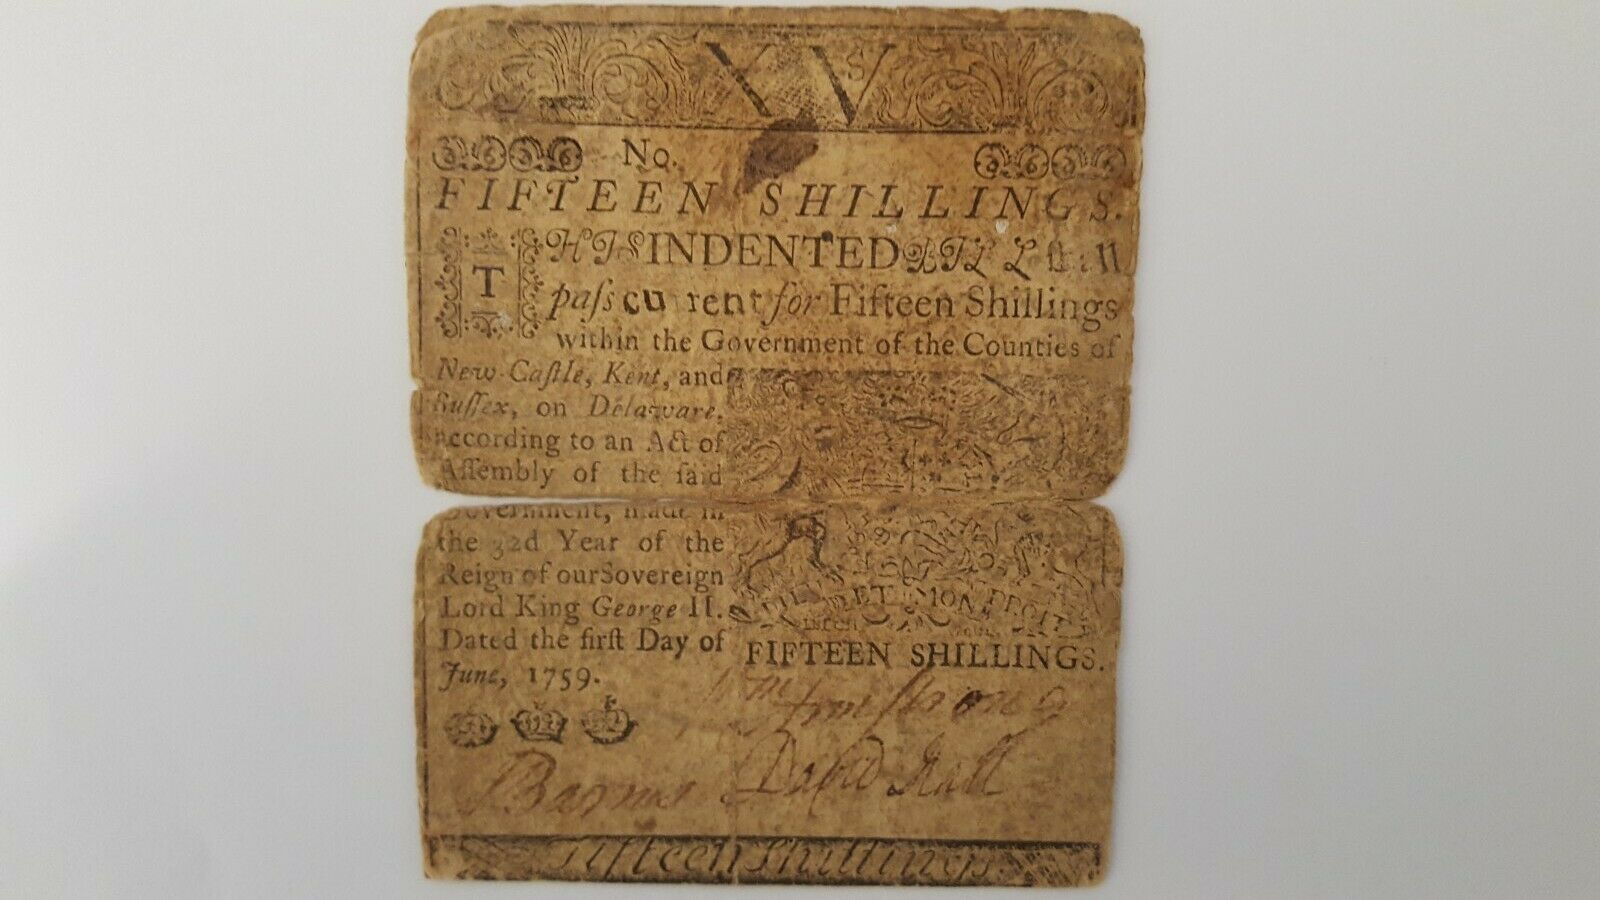 XVs
No.
FIFTEEN SHILLINGS.
THIS INDENTED BILL ſhall
paſs current for Fifteen Shillings
within the Government of the Counties of
New-Caſtle, Kent, and
Suſſex, on Delaware,
according to an Act of
Aſſembly of the ſaid
Government, made in
the 32d Year of the
Reign of our Sovereign
Lord King George II.
Dated the firſt Day of
June, 1759.
DIEU ET MON DROIT
FIFTEEN SHILLINGS.
Wm Armſtrong
David Hall
J Barns
Fifteen Shillings